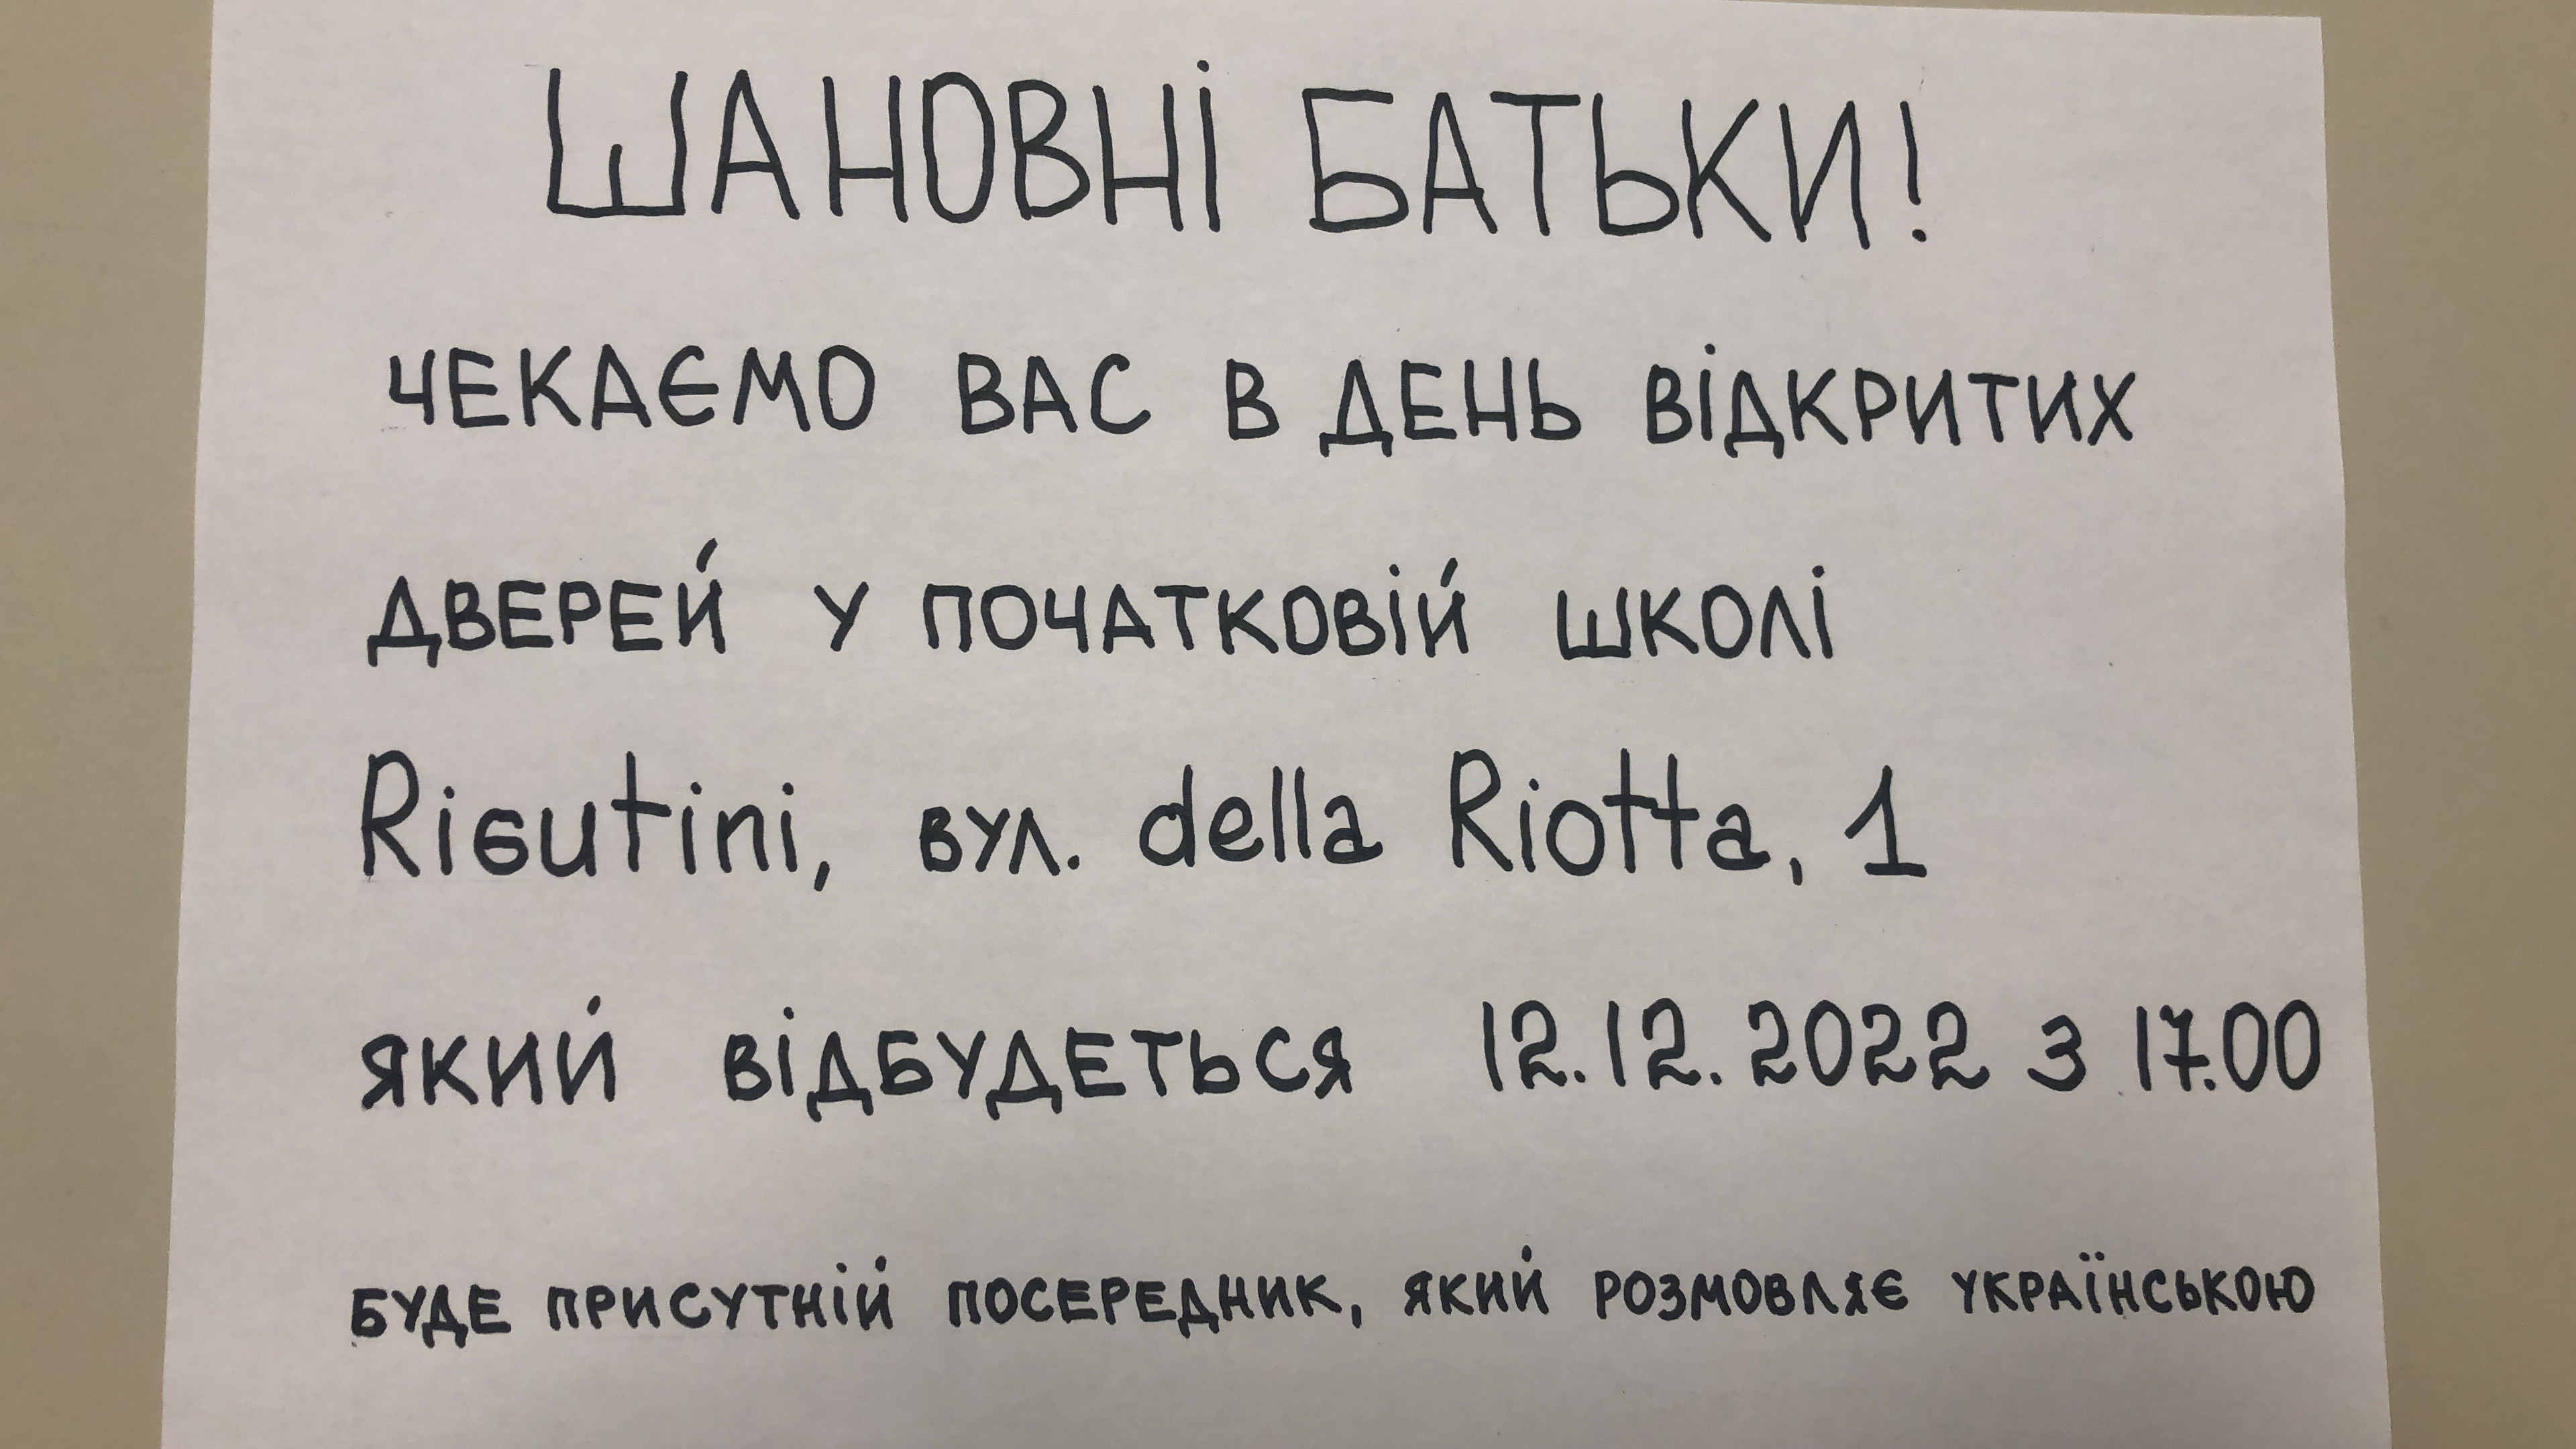 ШАНОВНІ БАТЬКИ!
ЧЕКАЄМО ВАС В ДЕНЬ ВІДКРИТИХ
ДВЕРЕЙ У ПОЧАТКОВІЙ ШКОЛІ
Rigutini, вул. della Riotta, 1
ЯКИЙ ВІДБУДЕТЬСЯ 12.12.2022 З 17.00
БУДЕ ПРИСУТНІЙ ПОСЕРЕДНИК, ЯКИЙ РОЗМОВЛЯЄ УКРАЇНСЬКОЮ